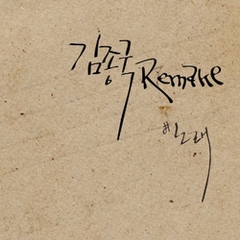 김종국 Remake